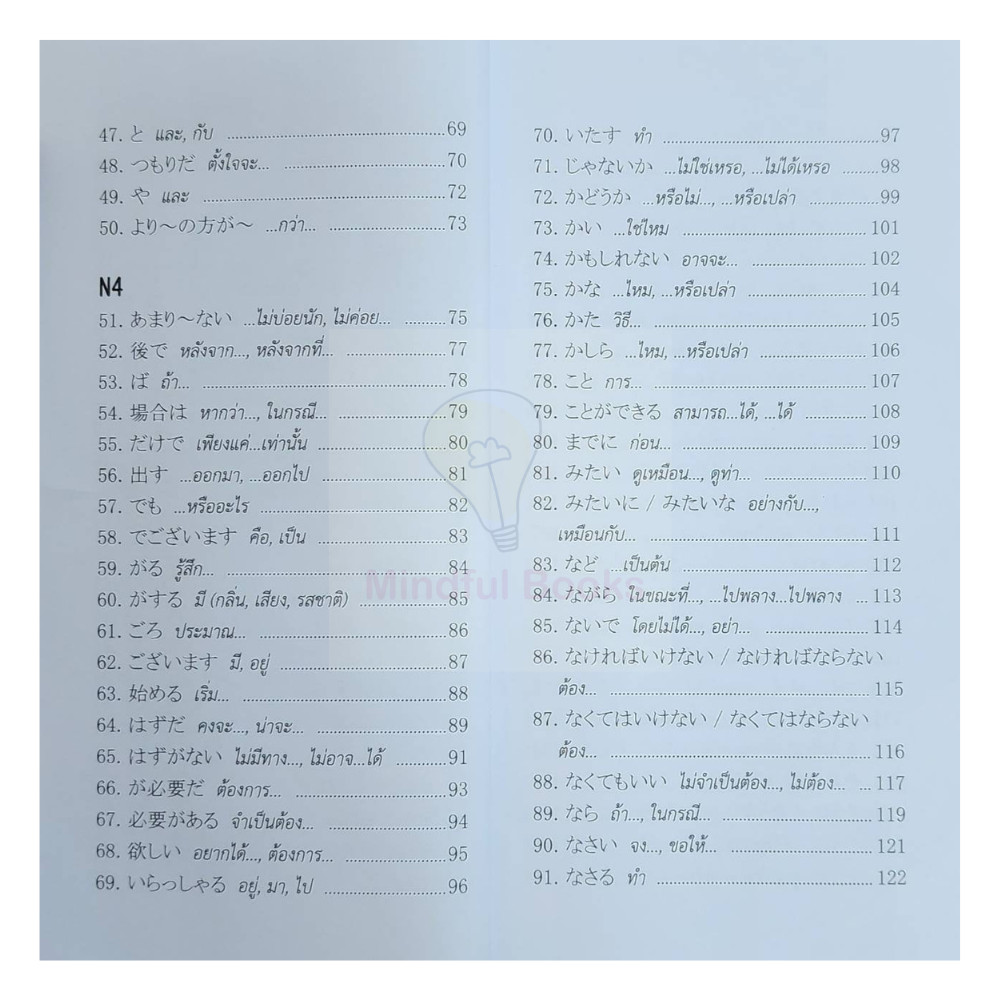 47. と และ, กับ ........................................69
48. つもりだ ตั้งใจจะ... ..............................70
49. や และ ..............................................72
50. より～の方が～ ...กว่า... .....................73
N4
51. あまり～ない ...ไม่บ่อยนัก, ไม่ค่อย... ..........75
52. 後で หลังจาก..., หลังจากที่... ..................77
53. ば ถ้า... ............................................78
54. 場合は หากว่า..., ในกรณี... ...................79
55. だけで เพียงแค่...เท่านั้น .........................80
56. 出す ...ออกมา, ...ออกไป .........................81
57. でも ...หรืออะไร ...................................82
58. でございます คือ, เป็น .........................83
59. がる รู้สึก... .......................................84
60. がする มี (กลิ่น, เสียง, รสชาติ) ................85
61. ごろ ประมาณ... ...................................86
62. ございます มี, อยู่ ..............................87
63. 始める เริ่ม... .....................................88
64. はずだ คงจะ..., น่าจะ... .......................89
65. はずがない ไม่มีทาง..., ไม่อาจ...ได้ ..........91
66. が必要だ ต้องการ... .............................93
67. 必要がある จำเป็นต้อง... ......................94
68. 欲しい อยากได้..., ต้องการ... ..................95
69. いらっしゃる อยู่, มา, ไป .....................96
70. いたす ทำ .........................................97
71. じゃないか ...ไม่ใช่เหรอ, ...ไม่ได้เหรอ .........98
72. かどうか ...หรือไม่..., ...หรือเปล่า ...............99
73. かい ...ใช่ไหม ....................................101
74. かもしれない อาจจะ... .......................102
75. かな ...ไหม, ...หรือเปล่า .......................104
76. かた วิธี... .........................................105
77. かしら ...ไหม, ...หรือเปล่า .....................106
78. こと การ... ........................................107
79. ことができる สามารถ...ได้, ...ได้ ............108
80. までに ก่อน... ....................................109
81. みたい ดูเหมือน..., ดูท่า... .....................110
82. みたいに / みたいな อย่างกับ...,
เหมือนกับ... ..........................................111
83. など ...เป็นต้น ...................................112
84. ながら ในขณะที่..., ...ไปพลาง...ไปพลาง ...113
85. ないで โดยไม่ได้..., อย่า... .....................114
86. なければいけない / なければならない
ต้อง... .................................................115
87. なくてはいけない / なくてはならない
ต้อง... .................................................116
88. なくてもいい ไม่จำเป็นต้อง..., ไม่ต้อง... ...117
89. なら ถ้า..., ในกรณี... ...........................119
90. なさい จง..., ขอให้... ...........................121
91. なさる ทำ .........................................122
Mindful Books